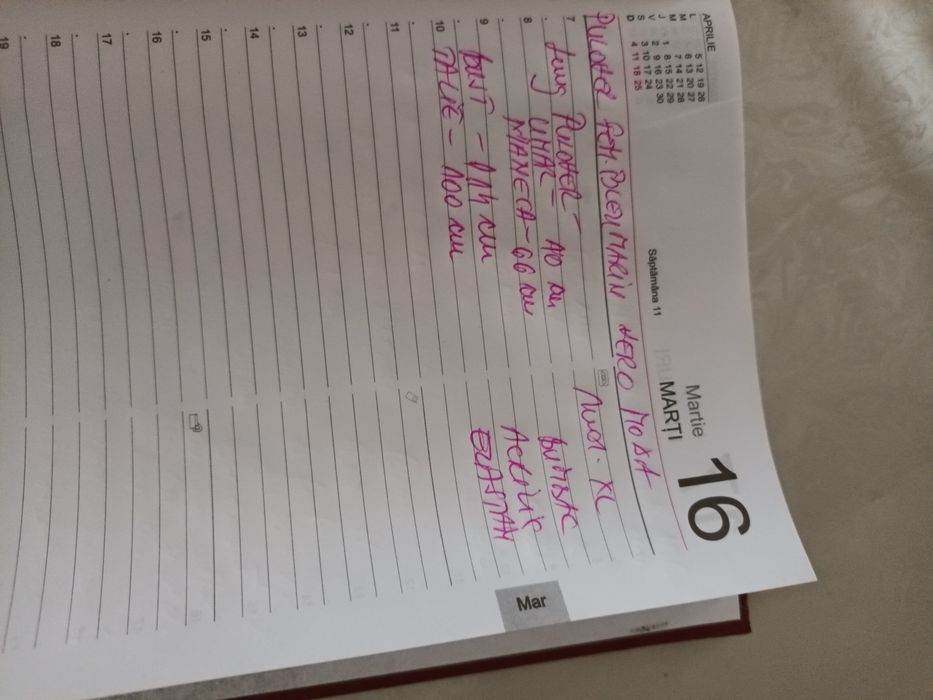 APRILIE
L 5 12 19 26
M 6 13 20 27
M 7 14 21 28
J 1 8 15 22 29
V 2 9 16 23 30
S 3 10 17 24
D 4 11 18 25
Săptămâna 11
Martie
MARȚI
16
PULOVER FEM. BLEUMARIN VERO MODA
7
Lung PULOVER - XL
8 UMAR - 40 cm BUMBAC
MANECA - 66 cm ACRILIC
9 BUST - 114 cm ELASTAN
10 TALIE - 100 cm
11
12
13
14
15
16
17
18
19
Mar